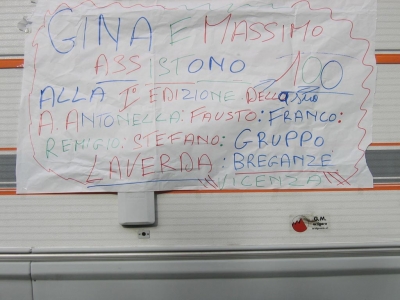 GINA E MASSIMO
ASSISTONO 100
ALLA 1° EDIZIONE DELL
A. ANTONELLA: FAUSTO: FRANCO:
REMIGIO: STEFANO: GRUPPO
LAVERDA: BREGANZE
VICENZA
G.M.